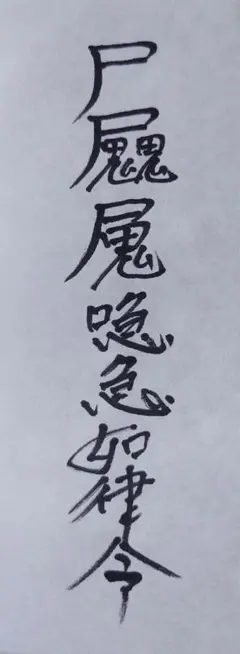 尸喼急如律令